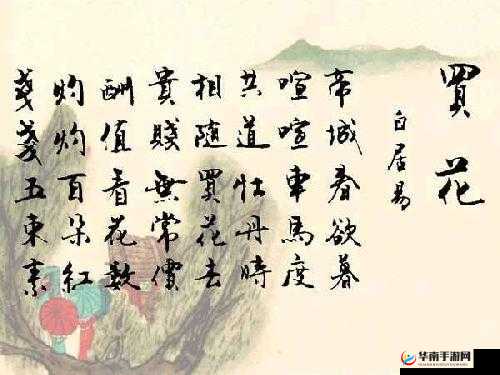 買花
白居易
帝城春欲暮
喧喧車馬度
共道牡丹時
相隨買花去
貴賤無常價
酬值看花數
灼灼百朵紅
戔戔五束素
华南手游网